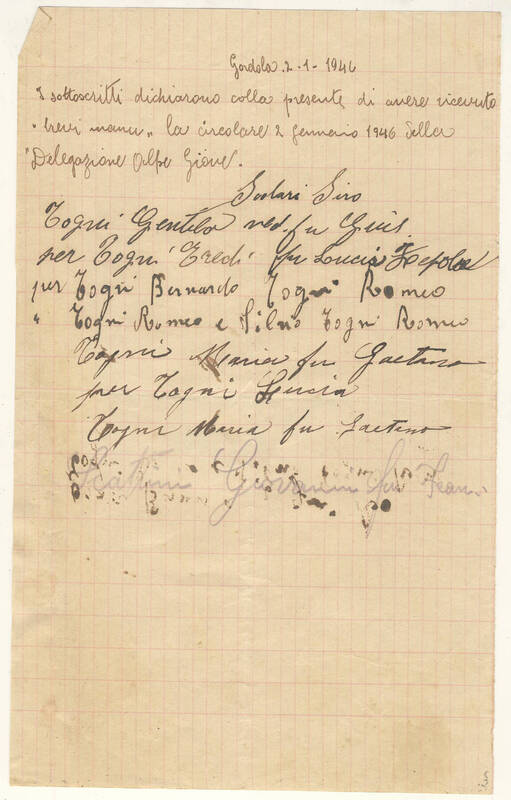 Gordola 2-1-1946
I sottoscritti dichiarono colla presente, di avere ricevuto
"brevi manu" la circolare 2 gennaio 1946 della
"Delegazione Alpe Giove".
Siro
Togni Gentila ved. fu Gius.
per Togni Eredi fu Lucia
per Togni Bernardo Togni Romeo
" Togni Romeo e Silvio Togni Romeo
Togni Maria fu Gaetano
per Togni Lucia
Togni Maria fu Gaetano
Giovanni fu